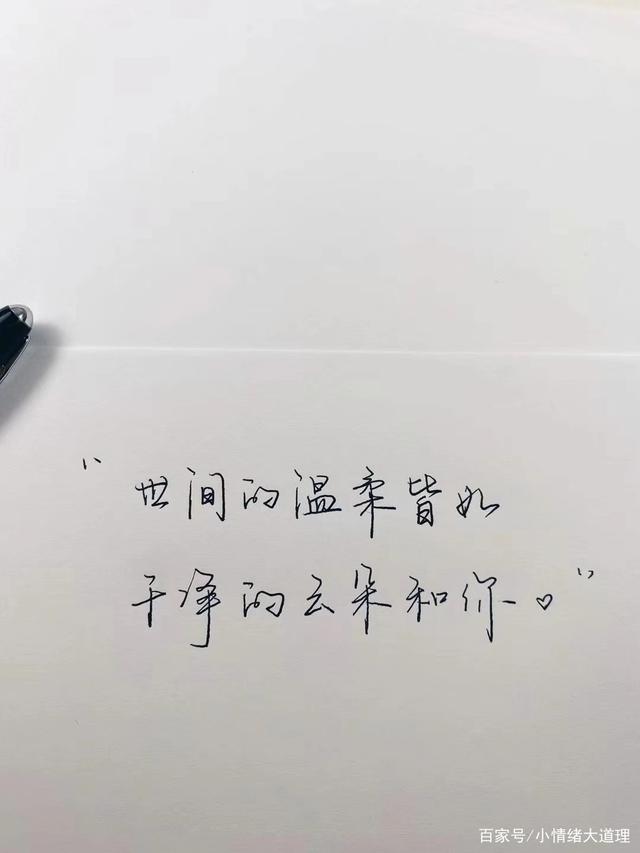 “世间的温柔皆如
干净的云朵和你。”
百家号/小情绪大道理